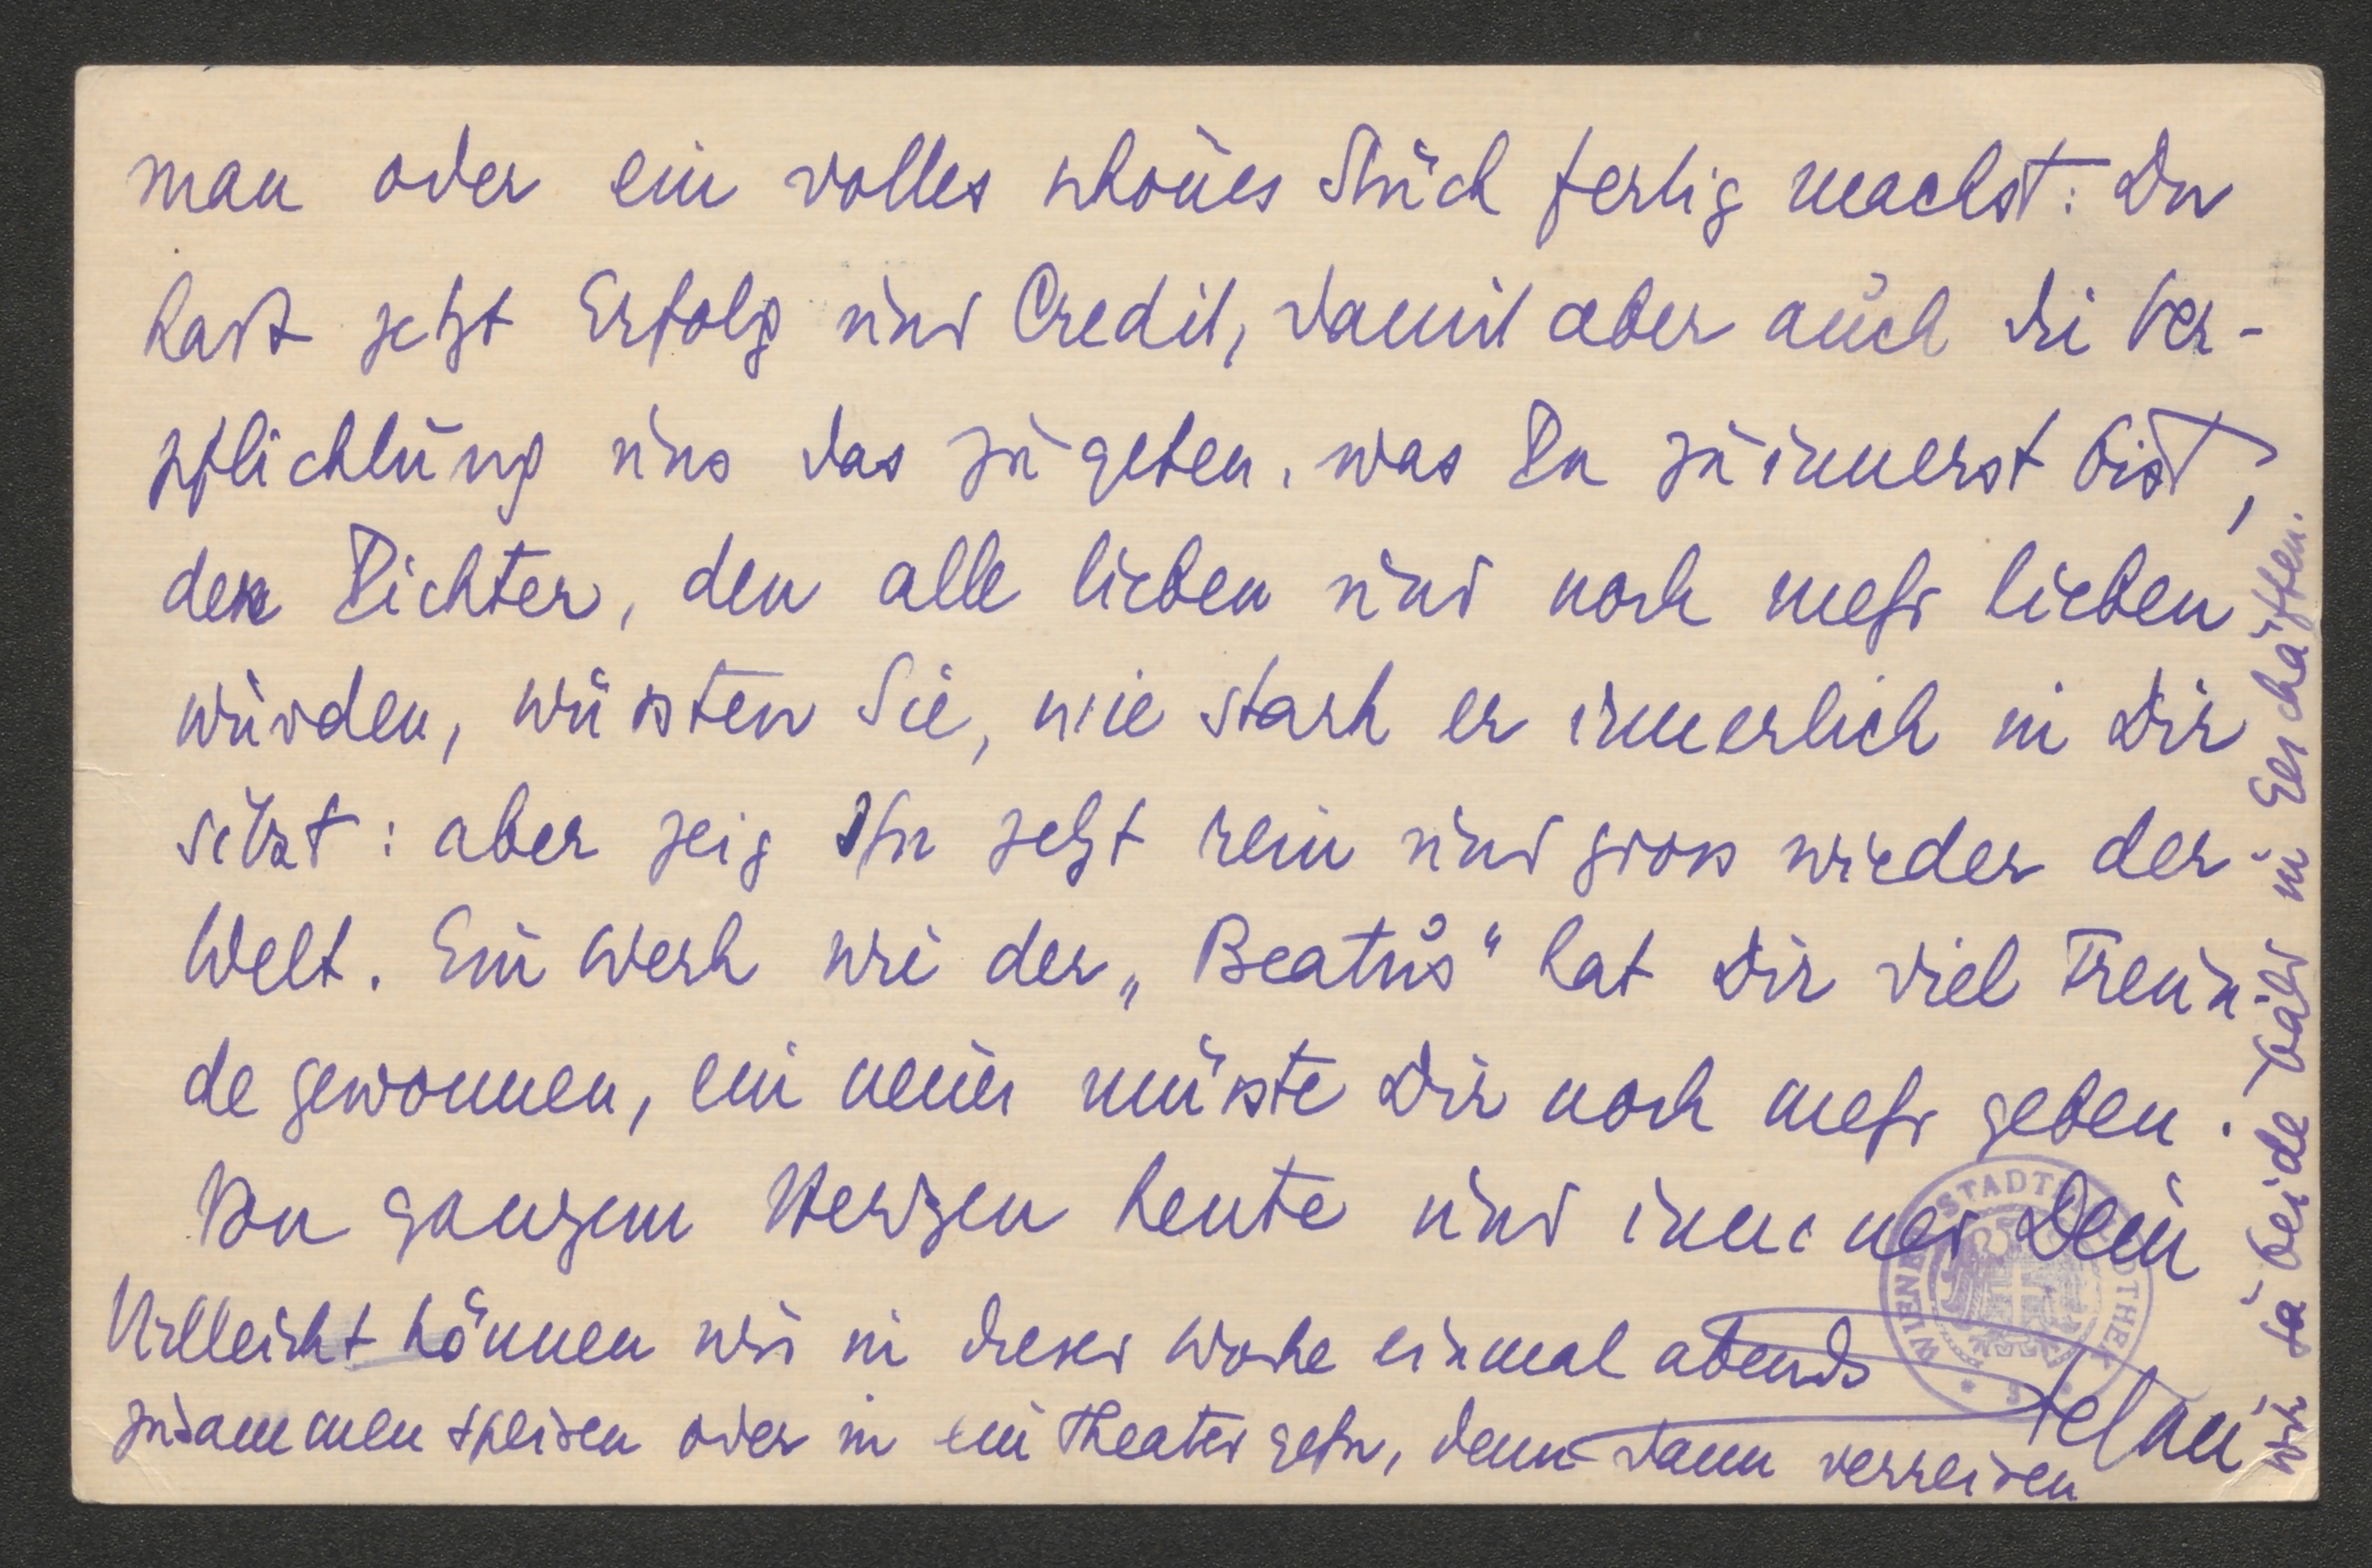 man oder ein volles schönes Stück fertig machst: Du
hast jetzt Erfolg und Credit, damit aber auch die Ver-
pflichtung uns das zu geben, was Du zuinnerst bist,
den Dichter, den alle lieben und noch mehr lieben
würden, wüssten Sie, wie stark er innerlich in Dir
sitzt: aber zeig Ihn jetzt rein und gross wieder der
Welt. Ein Werk wie der „Beatus“ hat Dir viel Freun
de gewonnen, ein neues müsste Dir noch mehr geben.
Von ganzem Herzen heute und immer Dein
Stefan
Vielleicht können wir in dieser Woche einmal abends
zusammen speisen oder in ein Theater gehn, denn dann verreisen
wir ja beide bald in Geschäften.
WIENER STADTBIBLIOTHEK